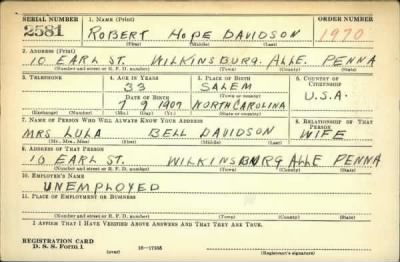 SERIAL NUMBER 1. NAME (Print) ORDER NUMBER
2581 ROBERT HOPE DAVIDSON 1970
(First) (Middle) (Last)
2. ADDRESS (Print)
10 EARL ST. WILKINSBURG. ALLE. PENNA
(Number and street or R. F. D. number) (Town) (County) (State)
3. TELEPHONE 4. AGE IN YEARS 5. PLACE OF BIRTH 6. COUNTRY OF CITIZENSHIP
33 SALEM
DATE OF BIRTH (Town or county)
7 9 1907 NORTH CAROLINA U.S.A.
(Exchange) (Number) (Mo.) (Day) (Yr.) (State or country)
7. NAME OF PERSON WHO WILL ALWAYS KNOW YOUR ADDRESS 8. RELATIONSHIP OF THAT PERSON
MRS LULA BELL DAVIDSON WIFE
(Mr., Mrs., Miss) (First) (Middle) (Last)
9. ADDRESS OF THAT PERSON
10 EARL ST. WILKINSBURG ALLE PENNA
(Number and street or R. F. D. number) (Town) (County) (State)
10. EMPLOYER'S NAME
UNEMPLOYED
11. PLACE OF EMPLOYMENT OR BUSINESS
(Number and street or R. F. D. number) (Town) (County) (State)
I AFFIRM THAT I HAVE VERIFIED ABOVE ANSWERS AND THAT THEY ARE TRUE.
REGISTRATION CARD
D. S. S. Form 1 (over) (Registrant's signature)